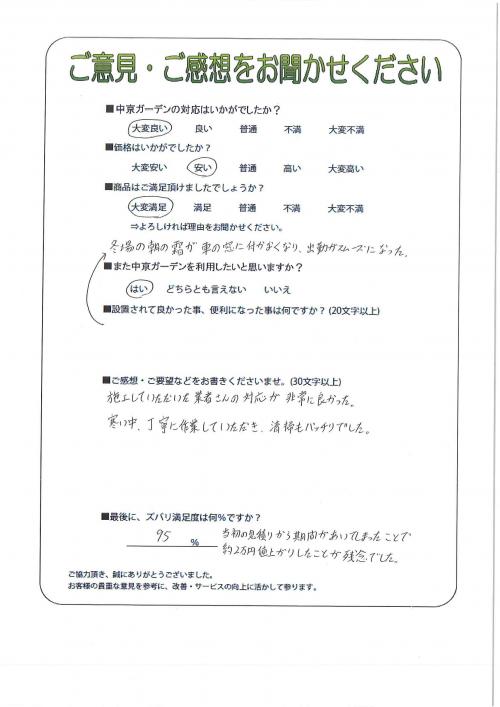 ご意見・ご感想をお聞かせください
■中京ガーデンの対応はいかがでしたか？
大変良い 良い 普通 不満 大変不満
■価格はいかがでしたか？
大変安い 安い 普通 高い 大変高い
■商品はご満足頂けましたでしょうか？
大変満足 満足 普通 不満 大変不満
⇒よろしければ理由をお聞かせください。
冬場の朝の霜が車の窓に付かなくなり、出勤がスムーズになった。
■また中京ガーデンを利用したいと思いますか？
はい どちらとも言えない いいえ
■設置されて良かった事、便利になった事は何ですか？(20文字以上)
■ご感想・ご要望などをお書きくださいませ。(30文字以上)
施工していただいた業者さんの対応が非常に良かった。
寒い中、丁寧に作業していただき、清掃もバッチリでした。
■最後に、ズバリ満足度は何％ですか？
95 %
当初の見積りから期間があいてしまったことで
約2万円値上がりしたことが残念でした。
ご協力頂き、誠にありがとうございました。
お客様の貴重な意見を参考に、改善・サービスの向上に活かして参ります。